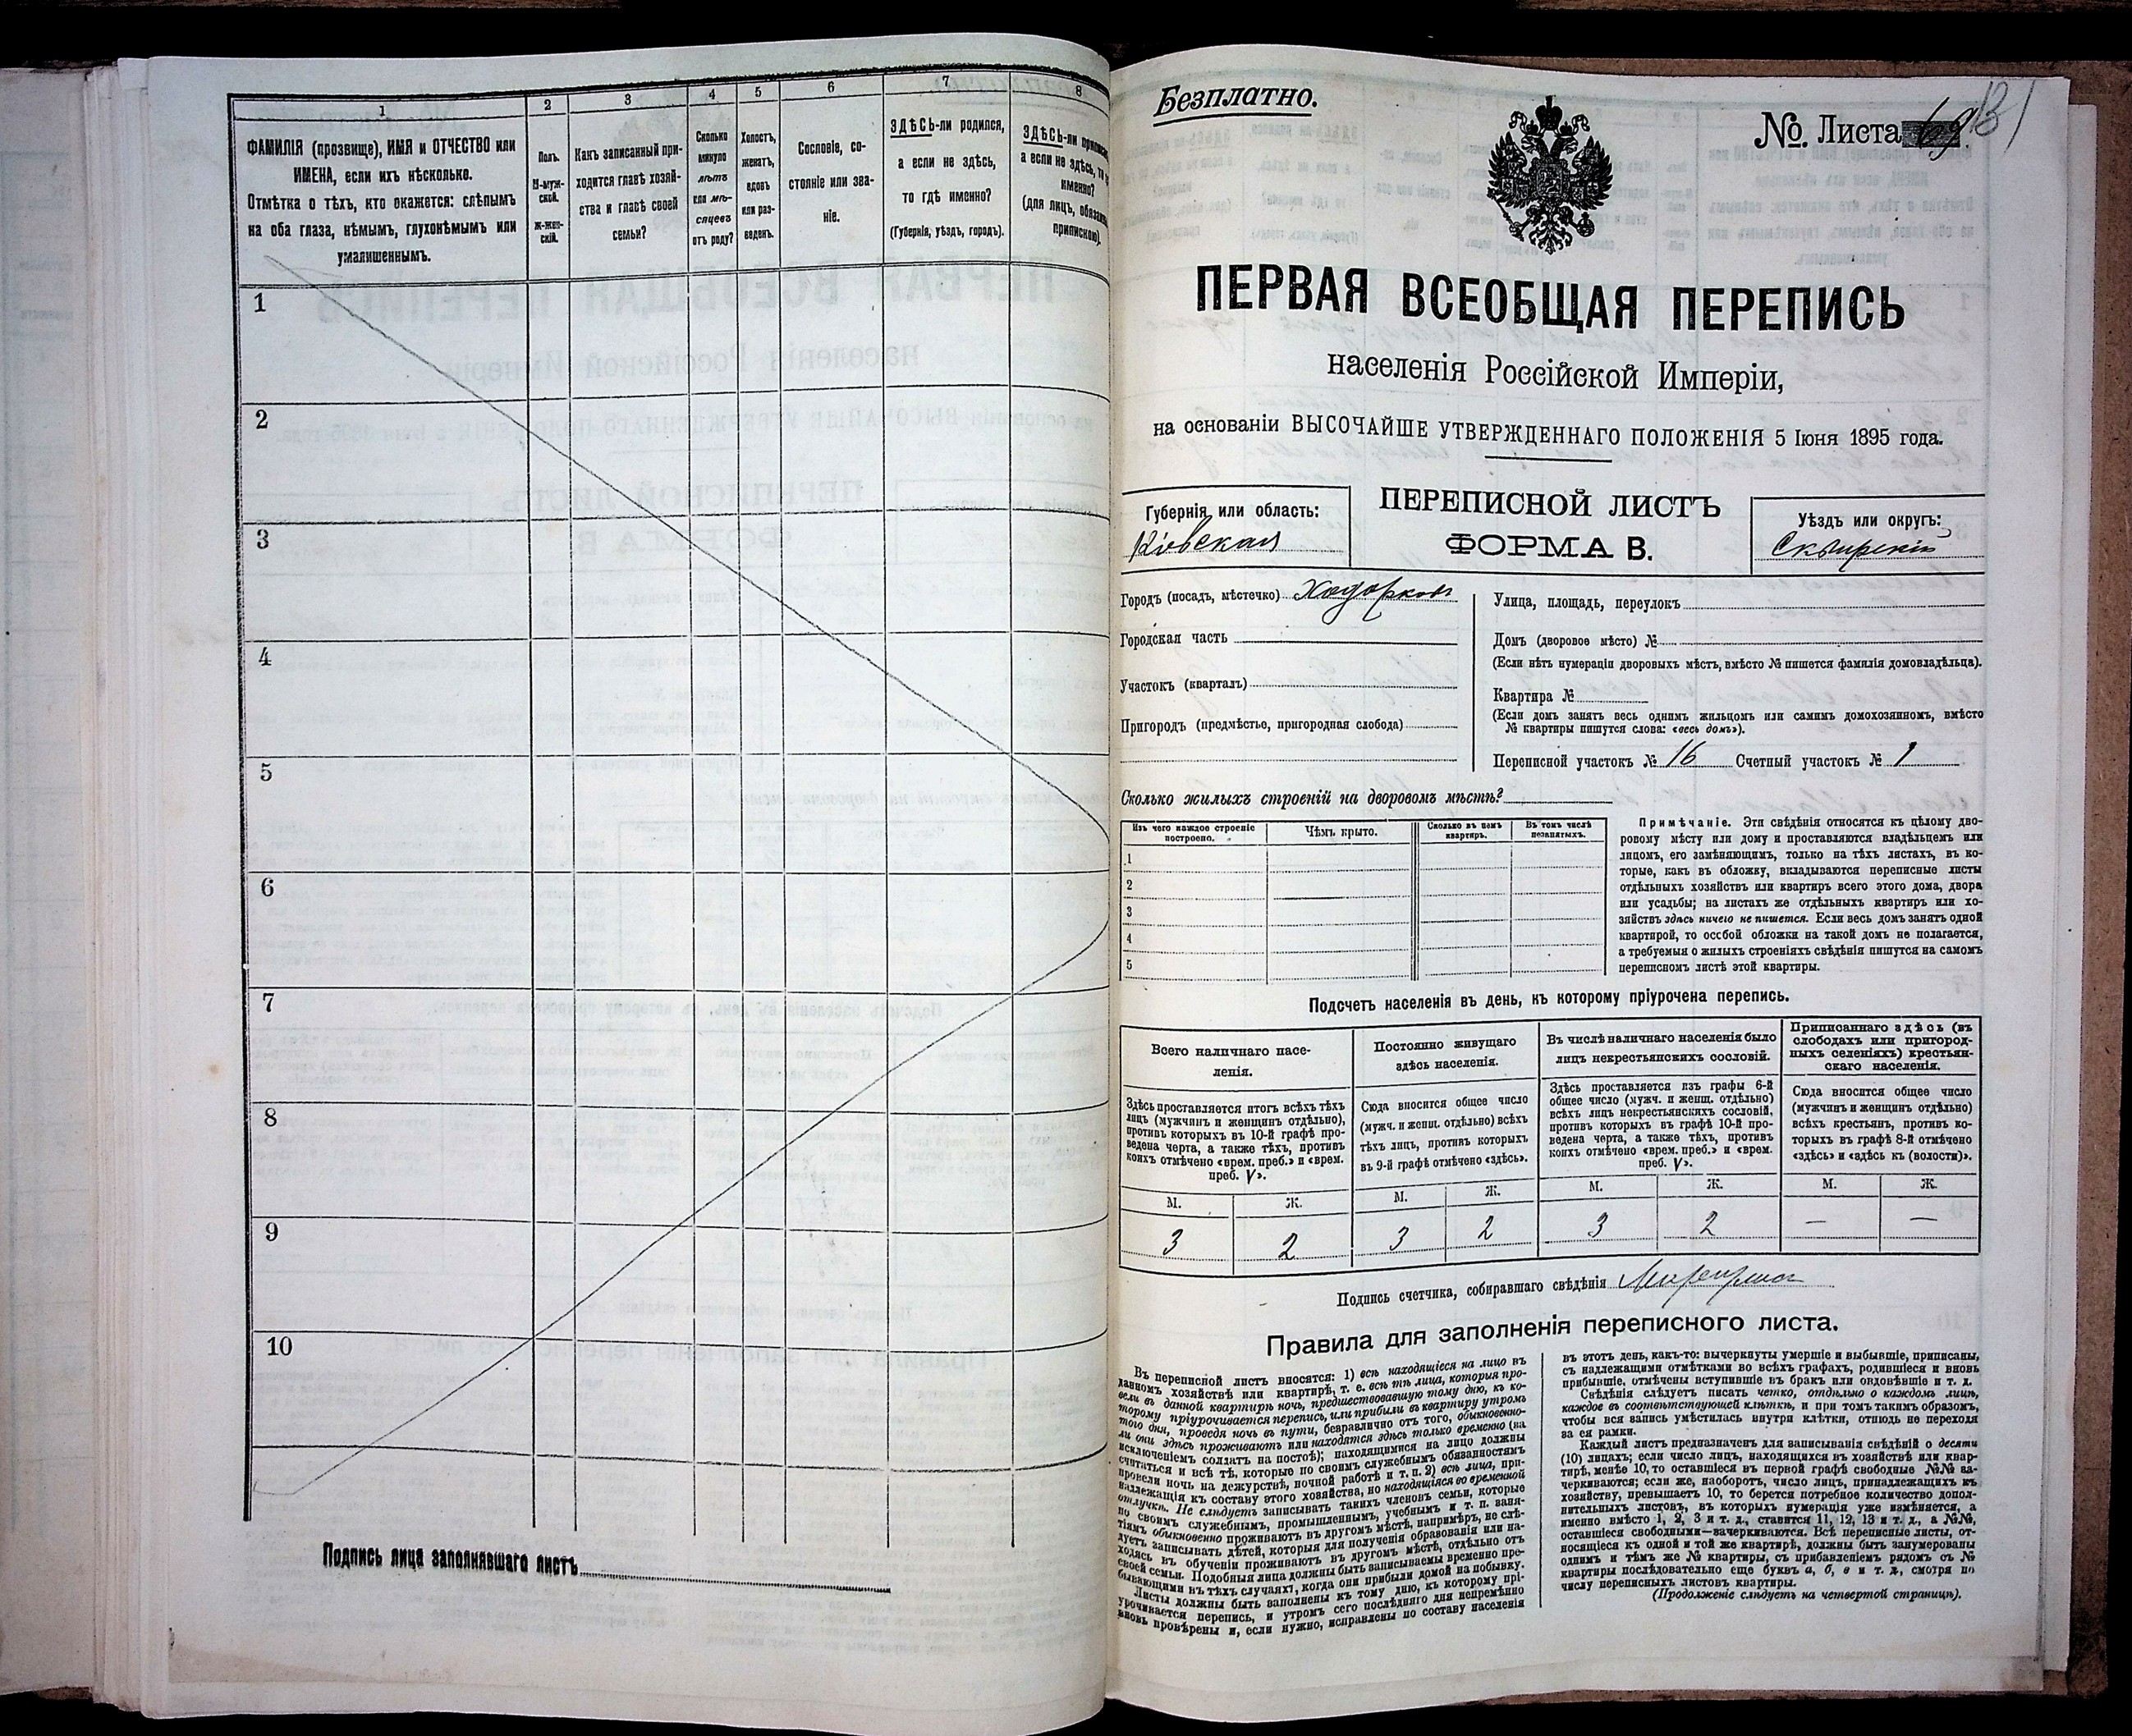 1
ФАМИЛІЯ (прозвище), ИМЯ и ОТЧЕСТВО или
ИМЕНА, если ихъ нѣсколько.
Отмѣтка о тѣхъ, кто окажется: слѣпымъ
на оба глаза, нѣмымъ, глухонѣмымъ или
умалишеннымъ.
2
Полъ.
М-муж-
ской.
Ж-жен-
скій.
3
Какъ записанный при-
ходится главѣ хозяй-
ства и главѣ своей
семьи?
4
Сколько
минуло
лѣтъ
или мѣ-
сяцевъ
отъ роду?
5
Холостъ,
женатъ,
вдовъ
или раз-
веденъ.
6
Сословіе, со-
стояніе или зва-
ніе.
7
ЗДѢСЬ-ли родился,
а если не здѣсь,
то гдѣ именно?
(Губернія, уѣздъ, городъ).
8
ЗДѢСЬ-ли
а если не здѣсь,
именно?
(для лицъ,
припискою).
1
2
3
4
5
6
7
8
9
10
Подпись лица заполнявшаго листъ
Безплатно.
№. Листа 69
131
ПЕРВАЯ ВСЕОБЩАЯ ПЕРЕПИСЬ
населенія Россійской Имперіи,
на основаніи ВЫСОЧАЙШЕ УТВЕРЖДЕННАГО ПОЛОЖЕНІЯ 5 Іюня 1895 года.
Губернія или область:
Кіевская
ПЕРЕПИСНОЙ ЛИСТЪ
ФОРМА В.
Уѣздъ или округъ:
Сквирскій
Городъ (посадъ, мѣстечко) Ходорковъ
Городская часть
Участокъ (кварталъ)
Пригородъ (предмѣстье, пригородная слобода)
Улица, площадь, переулокъ
Домъ (дворовое мѣсто) №
(Если нѣтъ нумераціи дворовыхъ мѣстъ, вмѣсто № пишется фамилія домовладѣльца).
Квартира №
(Если домъ занятъ весь однимъ жильцомъ или самимъ домохозяиномъ, вмѣсто
№ квартиры пишутся слова: «весь домъ»).
Переписной участокъ № 16 Счетный участокъ № 1
Сколько жилыхъ строеній на дворовомъ мѣстѣ?
Изъ чего каждое строеніе
построено.
Чѣмъ крыто.
Сколько въ немъ
квартиръ.
Въ томъ числѣ
незанятыхъ.
1
2
3
4
5
Примѣчаніе. Эти свѣдѣнія относятся къ цѣлому дво-
ровому мѣсту или дому и проставляются владѣльцемъ или
лицомъ, его замѣняющимъ, только на тѣхъ листахъ, въ ко-
торые, какъ въ обложку, вкладываются переписные листы
отдѣльныхъ хозяйствъ или квартиръ всего этого дома, двора
или усадьбы; на листахъ же отдѣльныхъ квартиръ или хо-
зяйствъ здѣсь ничего не пишется. Если весь домъ занятъ одной
квартирой, то особой обложки на такой домъ не полагается,
а требуемыя о жилыхъ строеніяхъ свѣдѣнія пишутся на самомъ
переписномъ листѣ этой квартиры.
Подсчетъ населенія въ день, къ которому пріурочена перепись.
Всего наличнаго насе-
ленія.
Здѣсь проставляется итогъ всѣхъ тѣхъ
лицъ (мужчинъ и женщинъ отдѣльно),
противъ которыхъ въ 10-й графѣ про-
ведена черта, а также тѣхъ, противъ
коихъ отмѣчено «врем. преб.» и «врем.
преб. V».
М. Ж.
3 2
Постоянно живущаго
здѣсь населенія.
Сюда вносится общее число
(мужч. и женщ. отдѣльно) всѣхъ
тѣхъ лицъ, противъ которыхъ
въ 9-й графѣ отмѣчено «здѣсь».
М. Ж.
3 2
Въ числѣ наличнаго населенія было
лицъ некрестьянскихъ сословій.
Здѣсь проставляется изъ графы 6-й
общее число (мужч. и женщ. отдѣльно)
всѣхъ лицъ некрестьянскихъ сословій,
противъ которыхъ въ графѣ 10-й про-
ведена черта, а также тѣхъ, противъ
коихъ отмѣчено «врем. преб.» и «врем.
преб. V».
М. Ж.
3 2
Приписаннаго здѣсь (въ
слободахъ или пригород-
ныхъ селеніяхъ) крестьян-
скаго населенія.
Сюда вносится общее число
(мужчинъ и женщинъ отдѣльно)
всѣхъ крестьянъ, противъ ко-
торыхъ въ графѣ 8-й отмѣчено
«здѣсь» и «здѣсь къ (волости)».
М. Ж.
— —
Подпись счетчика, собиравшаго свѣдѣнія
Правила для заполненія переписного листа.
Въ переписной листъ вносятся: 1) всѣ находящіеся на лицо въ
данномъ хозяйствѣ или квартирѣ, т. е. всѣ тѣ лица, которыя про-
вели въ данной квартирѣ ночь, предшествовавшую тому дню, къ ко-
торому пріурочивается перепись, или прибыли въ квартиру утромъ
того дня, проведя ночь въ пути, безразлично отъ того, обыкновенно-
ли они здѣсь проживаютъ или находятся здѣсь только временно (за
исключеніемъ солдатъ на постоѣ); находящимися на лицо должны
считаться и всѣ тѣ, которые по своимъ служебнымъ обязанностямъ
провели ночь на дежурствѣ, ночной работѣ и т. п. 2) всѣ лица, при-
надлежащія къ составу этого хозяйства, но находящіяся во временной
отлучкѣ. Не слѣдуетъ записывать такихъ членовъ семьи, которые
по своимъ служебнымъ, промышленнымъ, учебнымъ и т. п. заня-
тіямъ обыкновенно проживаютъ въ другомъ мѣстѣ, напримѣръ, не слѣ-
дуетъ записывать дѣтей, которыя для полученія образованія или на-
ходясь въ обученіи проживаютъ въ другомъ мѣстѣ, отдѣльно отъ
своей семьи. Подобныя лица должны быть записываемы временно пре-
бывающими въ тѣхъ случаяхъ, когда они прибыли домой на побывку.
Листы должны быть заполнены къ тому дню, къ которому прі-
урочивается перепись, и утромъ сего послѣдняго дня непремѣнно
вновь провѣрены и, если нужно, исправлены по составу населенія
въ этотъ день, какъ-то: вычеркнуты умершіе и выбывшіе, приписаны,
съ надлежащими отмѣтками во всѣхъ графахъ, родившіеся и вновь
прибывшіе, отмѣчены вступившіе въ бракъ или овдовѣвшіе и т. д.
Свѣдѣнія слѣдуетъ писать четко, отдѣльно о каждомъ лицѣ,
каждое въ соотвѣтствующей клѣткѣ, и при томъ такимъ образомъ,
чтобы вся запись умѣстилась внутри клѣтки, отнюдь не переходя
за ея рамки.
Каждый листъ предназначенъ для записыванія свѣдѣній о десяти
(10) лицахъ; если число лицъ, находящихся въ хозяйствѣ или квар-
тирѣ, менѣе 10, то оставшіеся въ первой графѣ свободные №№ за-
черкиваются; если же, наоборотъ, число лицъ, принадлежащихъ къ
хозяйству, превышаетъ 10, то берется потребное количество допол-
нительныхъ листовъ, въ которыхъ нумерація уже измѣняется, а
именно вмѣсто 1, 2, 3 и т. д., ставится 11, 12, 13 и т. д., а №№,
оставшіеся свободными—зачеркиваются. Всѣ переписные листы, от-
носящіеся къ одной и той же квартирѣ, должны быть занумерованы
однимъ и тѣмъ же № квартиры, съ прибавленіемъ рядомъ съ №
квартиры послѣдовательно еще буквъ а, б, в и т. д., смотря по
числу переписныхъ листовъ квартиры.
(Продолженіе слѣдуетъ на четвертой страницѣ).